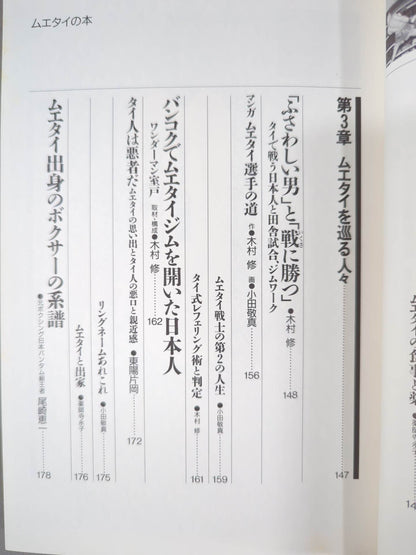 ムエタイの本
第3章 ムエタイを巡る人々……147
「ふさわしい男」と「戦に勝つ」
タイで戦う日本人と田舎試合、ジムワーク
●木村 修……148
マンガ ムエタイ選手の道 作●木村 修 画●小田敬真……156
ムエタイ戦士の第2の人生●小田敬真……159
タイ式レフェリング術と判定●木村 修……161
バンコクでムエタイジムを開いた日本人
ワンダーマン室戸 取材・構成●木村 修……162
タイ人は悪者だ ムエタイの思い出とタイ人の悪口と親近感●東陽片岡……172
リングネームあれこれ●小田敬真……175
ムエタイと出家……176
ムエタイ出身のボクサーの系譜
尾崎恵一……178